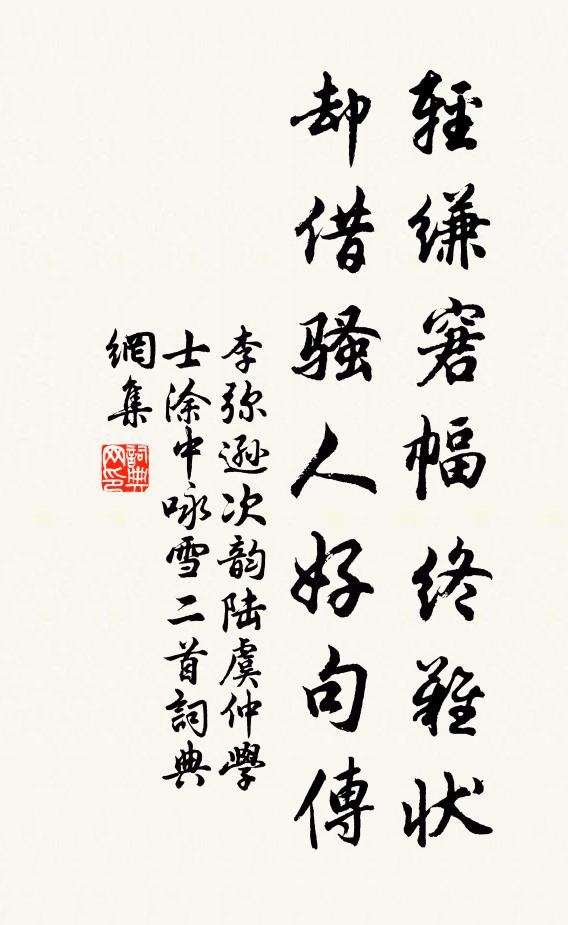 輕縑窘幅終難狀
却借騷人好句傳
李弥遜次韵陆虞仲學
士涂中咏雪二首詞典
網集
詞典
网印